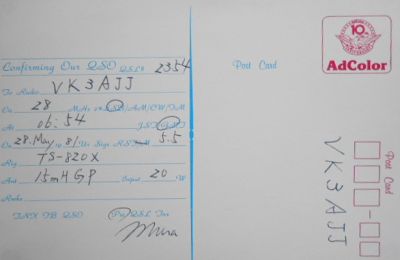 Confirming Our QSO QSL# 2354
To Radio VK3AJJ
On 28 MHz SSB/AM/CW/FM
At 06:54 JST GMT
On 28. May 19 81 Ur Sigs RST 5.5
Rig TS-820X
Ant 15mH GP Output 20 W
Remks
TNX FB QSO Pse QSL Tnx
Post Card
10
AdColor
Post Card
VK3AJJ